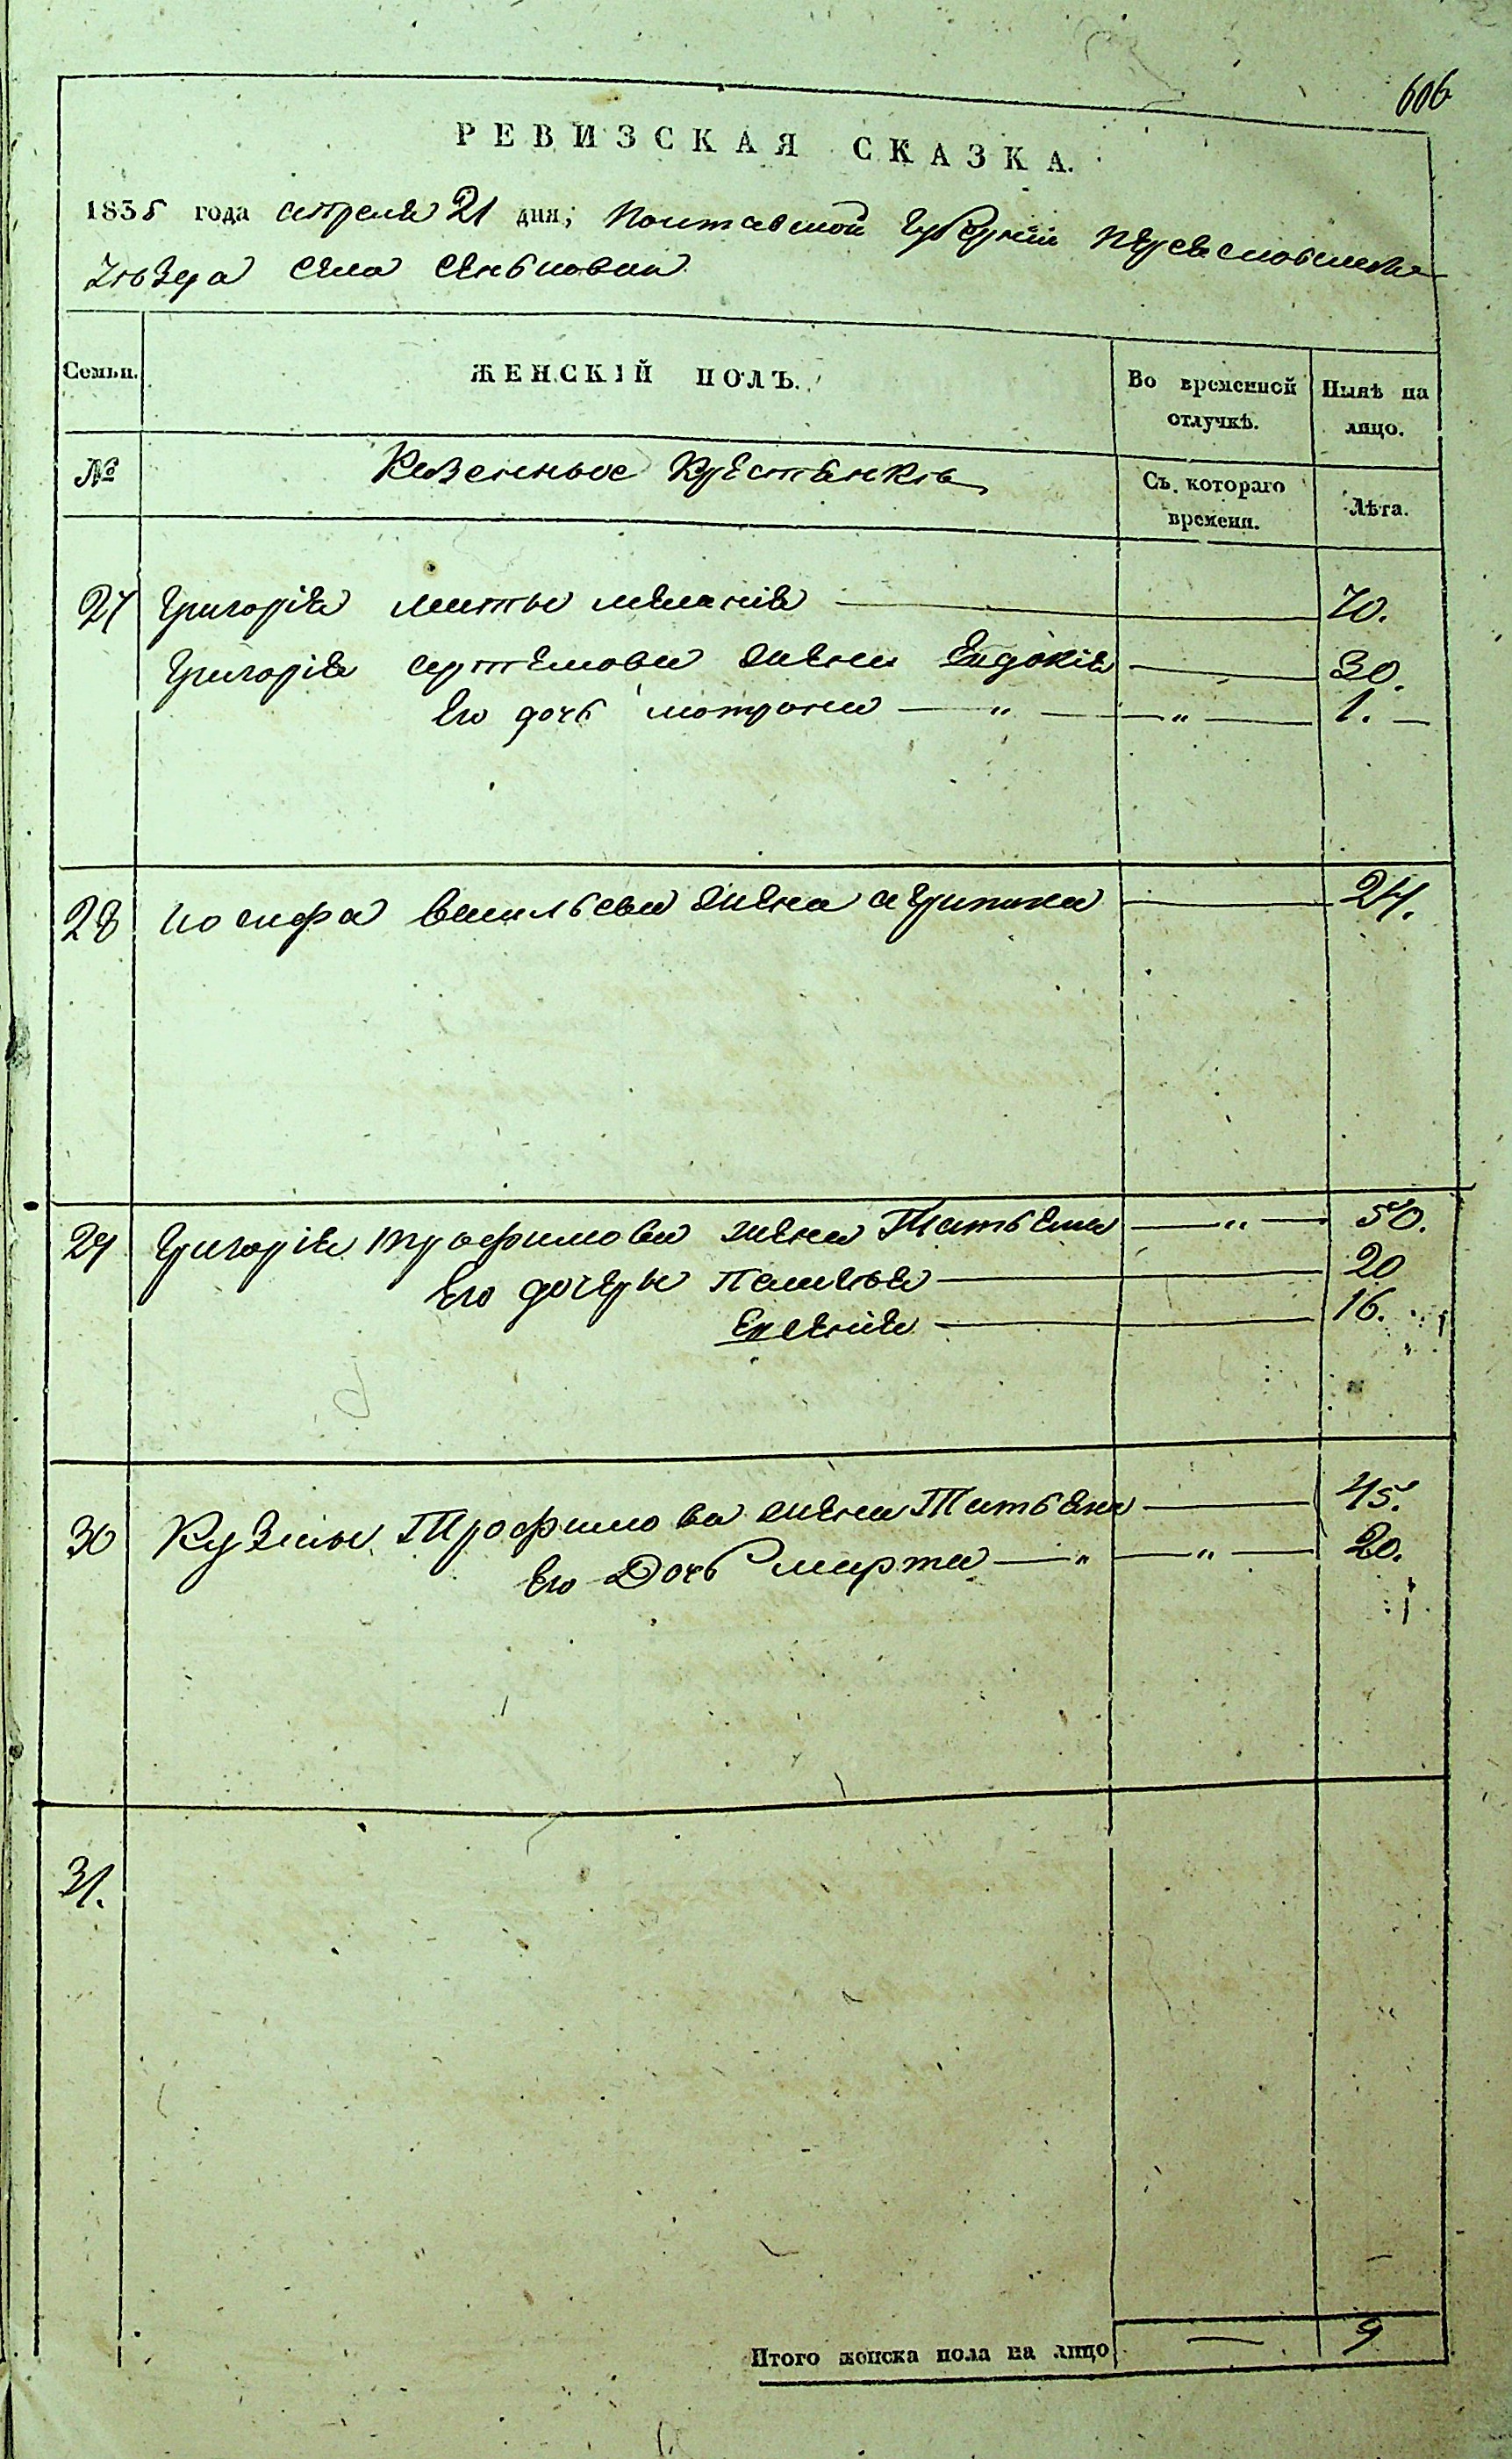 606
РЕВИЗСКАЯ СКАЗКА.
1835 года апреля 21 дня, Полтавской Губернии Переясловского
Уезда села Сеньковки
Семьи. ЖЕНСКІЙ ПОЛЪ. Во временной отлучкѣ. Нынѣ на лицо.
№ Казенные Крестянки Съ котораго времени. Лѣта.
27 Григорія мать меланія 70.
Григорія артемова жена Евдокія 30.
Его дочь мотрона — " — — " — 1. —
28 иосифа васильева жена агрипина 24.
29 Григорія трофимова жена Татьяна — " — 50.
Его дочери пелагея 20
Евгенія 16.
30 Кузмы Трофимова жена Татьяна 45.
Его Дочь марта — " — " — 20.
31.
Итого женска пола на лицо — 9